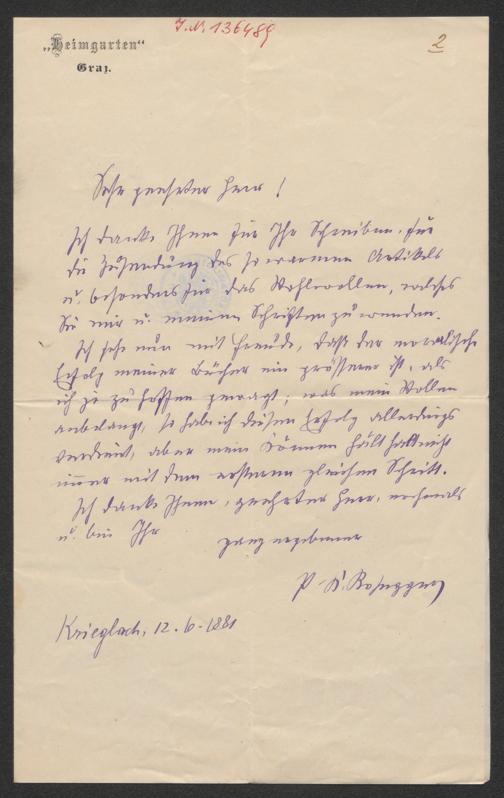 J.N. 136489
2
„Heimgarten“
Graz.
Sehr geehrter Herr!
Ich danke Ihnen für Ihr Schreiben, für
die Zusendung des so warmen Artikels
u. besonders für das Wohlwollen, welches
Sie mir u. meinen Schriften zuwenden.
Ich sehe nun mit Freude, daß der moralische
Erfolg meiner Bücher ein grösserer ist, als
ich je zu hoffen gewagt; was mein Wollen
anbelangt, so hab ich diesen Erfolg allerdings
verdient, aber mein Können hält halt nicht
immer mit dem ersteren gleichen Schritt.
Ich danke Ihnen, geehrter Herr, nochmals
u. bin Ihr
ganz ergebener
P. K. Rosegger
Krieglach, 12.6.1881